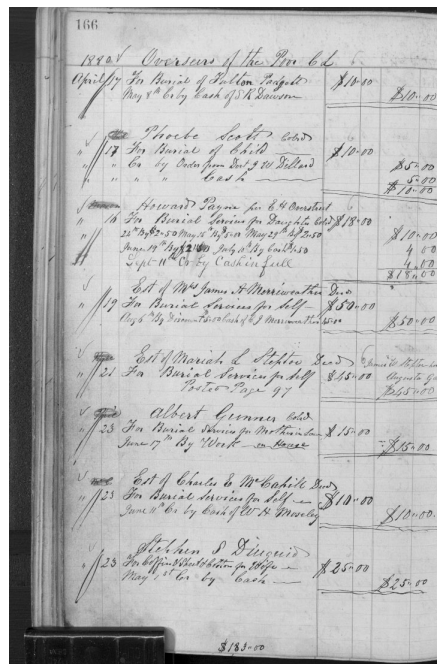 166
1882 Overseers of the Poor Cd
April 17 For Burial of Fulton Padgett $10.00
May 8th Cr by Cash of S R Dawson $10.00
Phoebe Scott Cold
" 17 For Burial of Child $10.00
" " Cr by Order from Doct J W Dillard $5.00
" " " Cash 5.00
$10.00
Howard Payne per E H
" 16 For Burial Services for Daughter Cold $18.00
$10.00
June 14th By July 10th By Cash 4.00
Sept 11th Cr by Cash in full 4.00
$18.00
Est of Mrs James A Merriweather Decd
" 19 For Burial Services for Self $50.00
Aug 5th By Discount 5.00 Cash of E J Merriweather 45.00 $50.00
Est of Mariah L Steptoe Decd
" 21 For Burial Services for Self $45.00
Posted Page 97 $45.00
Albert Gunner Cold
" 23 For Burial Services for Mother in Law $15.00
June 17th By Work on House $15.00
Est of Charles E McCahill Decd
" 23 For Burial Services for Self $10.00
June 11th Cr by Cash of W H Moseley $10.00
Stephen S Diuguid
" 23 For Coffin for Wife $25.00
May 1st Cr by Cash $25.00
$183.00